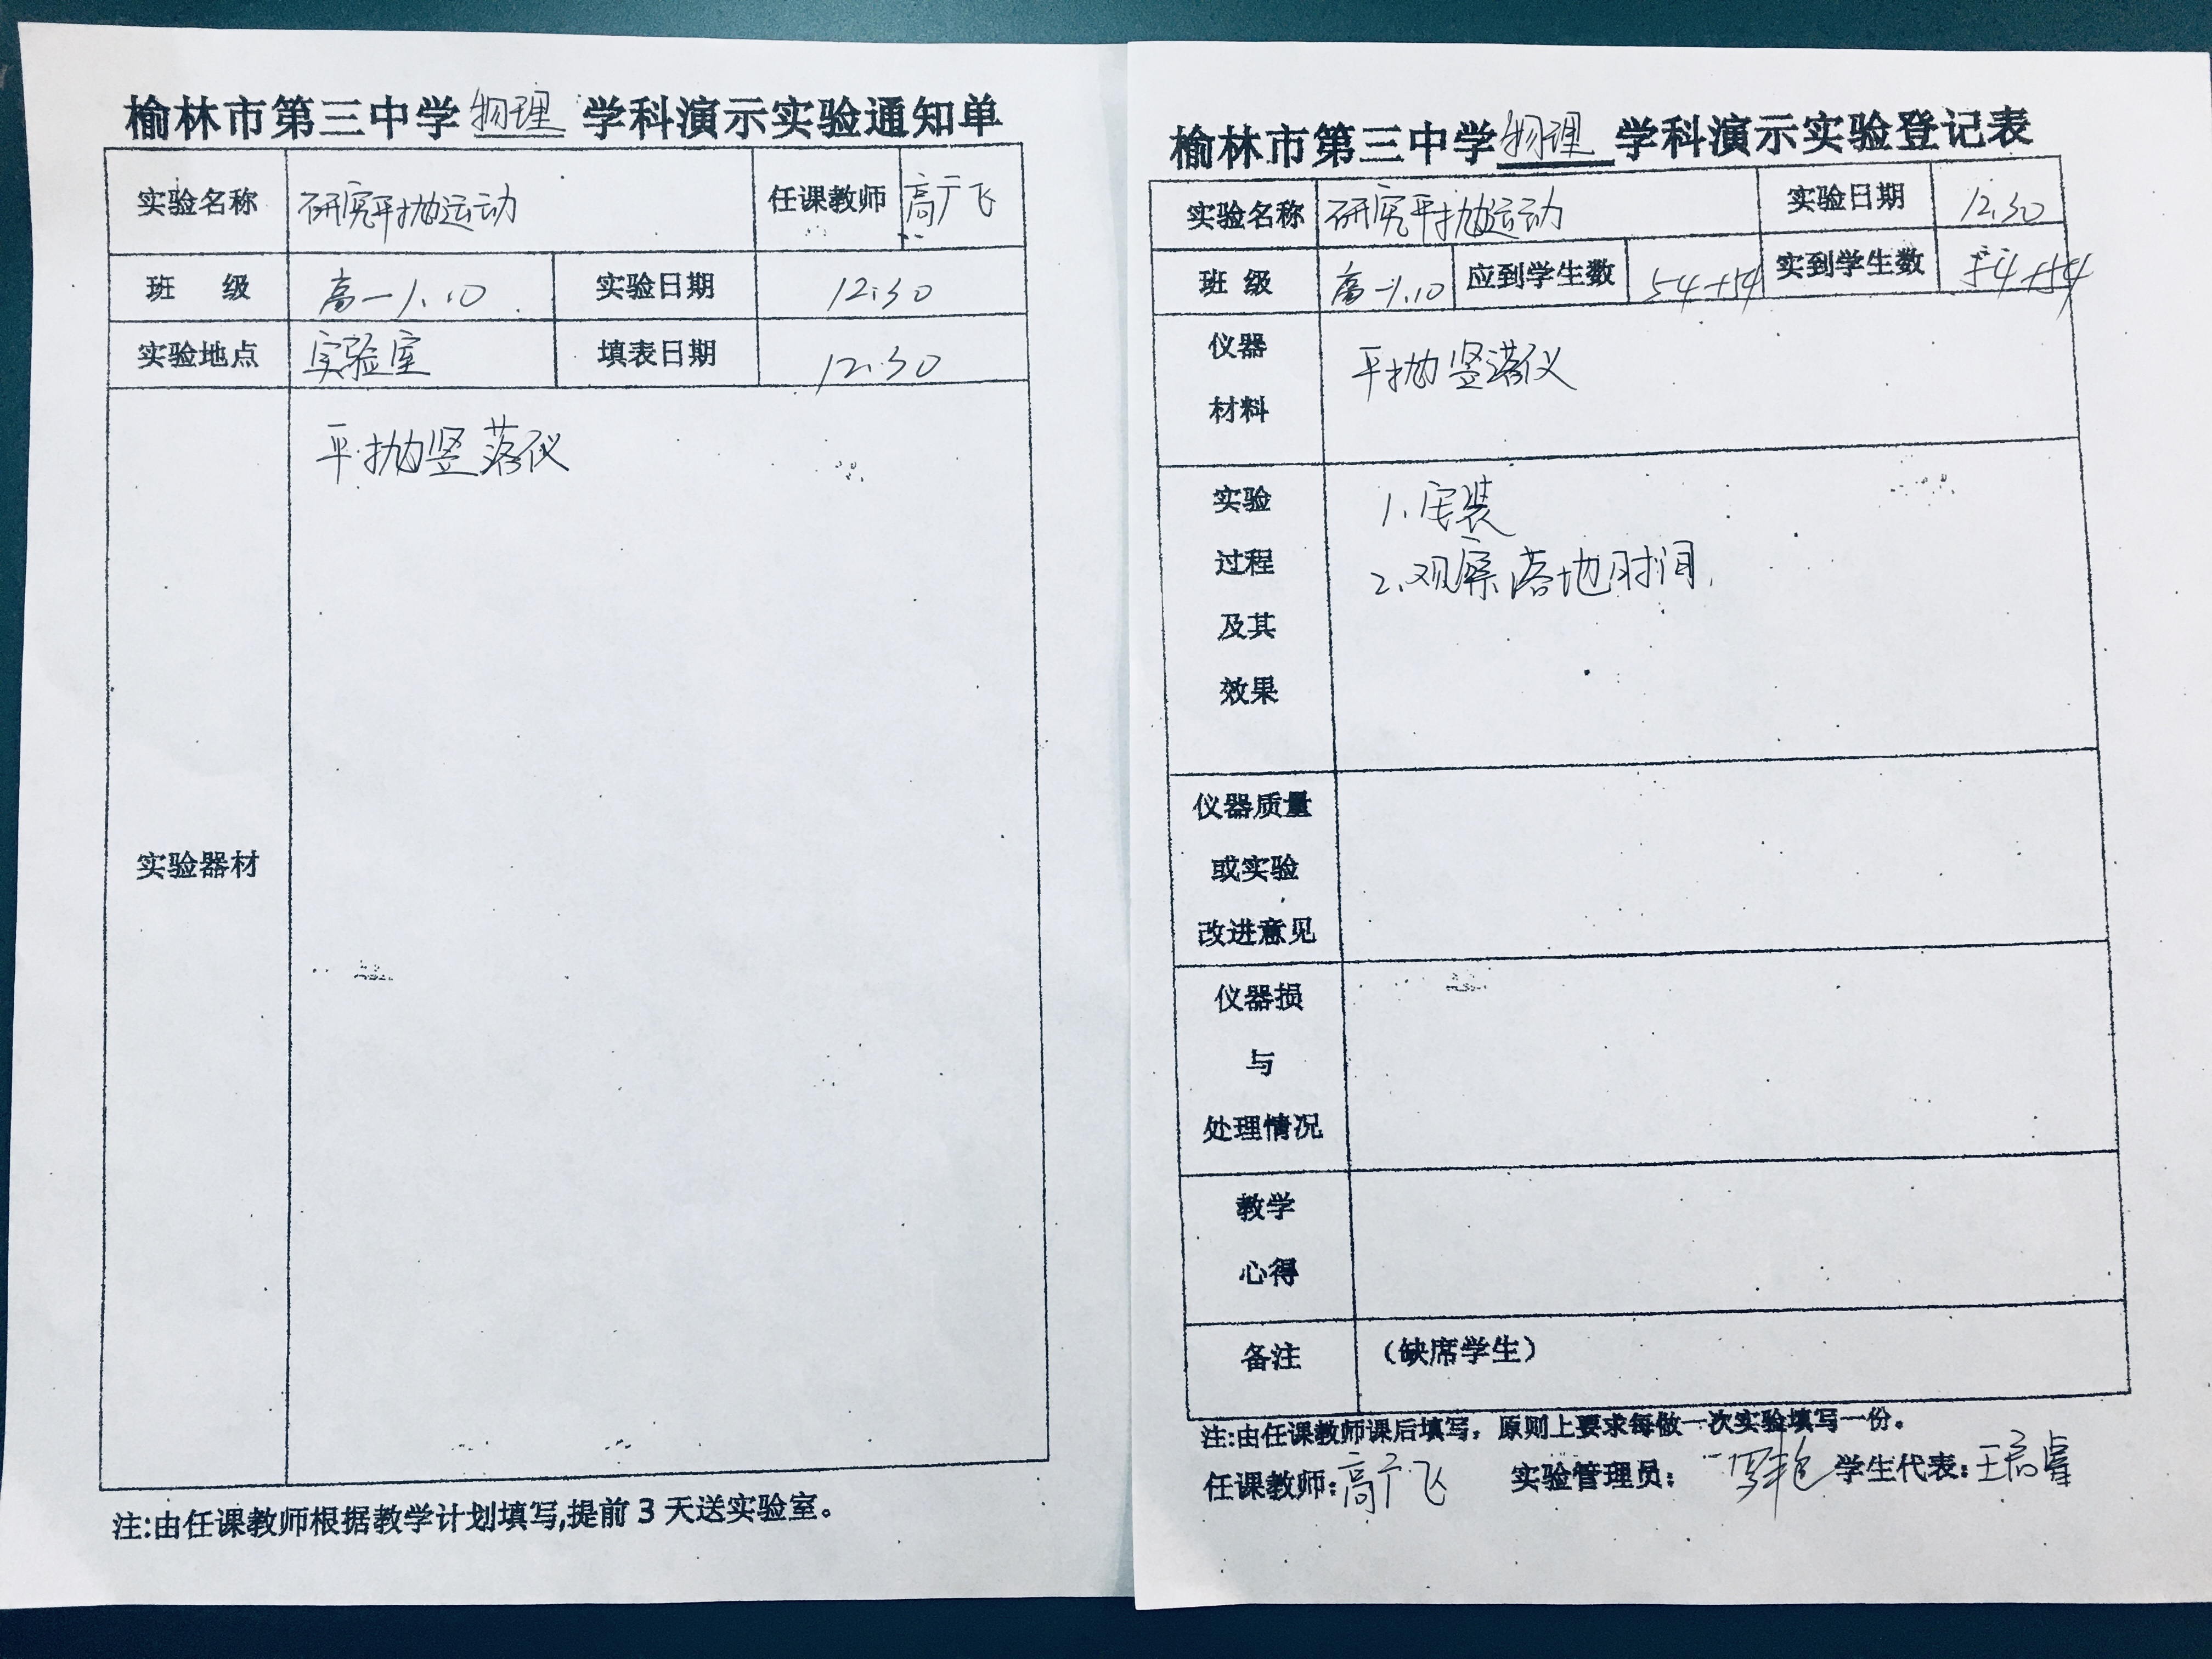 榆林市第三中学 物理 学科演示实验通知单
实验名称 研究平抛运动 任课教师 高广飞
班 级 高一1.10 实验日期 12.30
实验地点 实验室 填表日期 12.30
实验器材 平抛竖落仪
注:由任课教师根据教学计划填写,提前3天送实验室。
榆林市第三中学 物理 学科演示实验登记表
实验名称 研究平抛运动 实验日期 12.30
班 级 高一1.10 应到学生数 54+54 实到学生数 54+54
仪器 平抛竖落仪
材料
实验 1、安装
过程 2、观察落地时间
及其
效果
仪器质量
或实验
改进意见
仪器损
与
处理情况
教学
心得
备注 (缺席学生)
注:由任课教师课后填写，原则上要求每做一次实验填写一份。
任课教师:高广飞 实验管理员: 学生代表:王